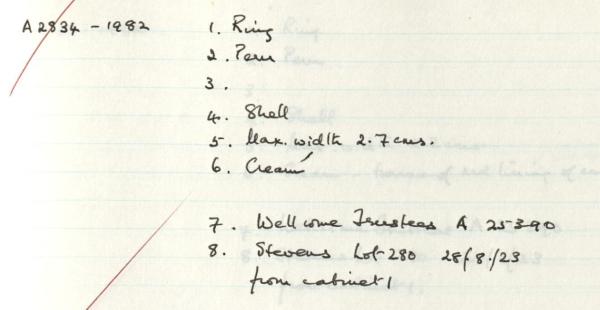 A2834 - 1982
1. Ring
2. Peru
3.
4. Shell
5. Max. width 2.7 cms.
6. Cream
7. Wellcome Trustees A 25390
8. Stevens Lot 280 28/8/23
from cabinet 1